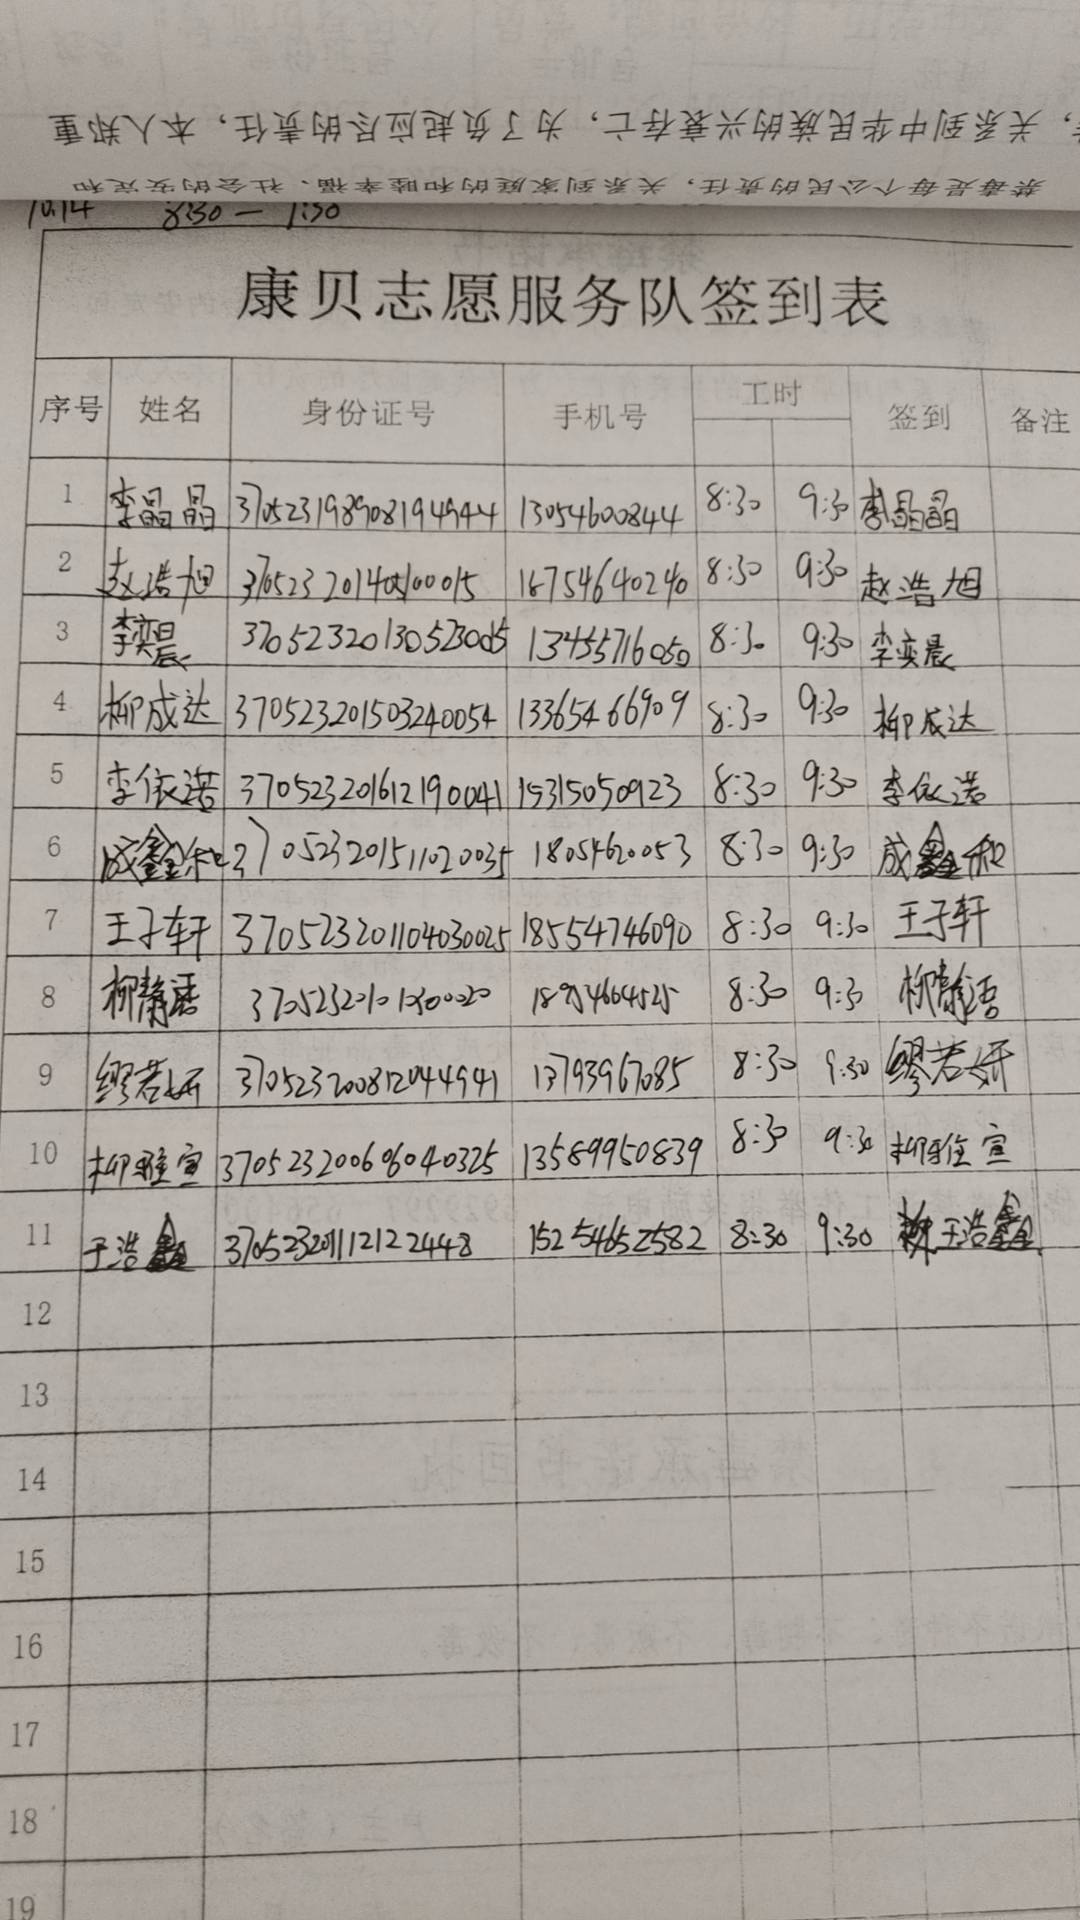 ，关系到中华民族的兴衰存亡，为了负起应尽的责任，本人郑重
禁毒是每个公民的责任，关系到家庭的和睦幸福、社会的安定和
10.14 8:30 —
康贝志愿服务队签到表
序号 姓名 身份证号 手机号 工时 签到 备注
1 李晶晶 370523198908194944 13054600844 8:30 9:30 李晶晶
2 赵浩旭 370523201405100015 18754640240 8:30 9:30 赵浩旭
3 李奕晨 13455716050 8:30 9:30 李奕晨
4 柳成达 370523201503240054 13365466909 8:30 9:30 柳成达
5 李依诺 370523201612190041 15315050923 8:30 9:30 李依诺
6 成鑫和 370523201511020035 18054620053 8:30 9:30 成鑫和
7 王子轩 370523201104030025 18554746090 8:30 9:30 王子轩
8 柳静语 8:30 9:30 柳静语
9 缪若妍 370523200812044941 13793967085 8:30 9:30 缪若妍
10 柳雅宣 370523200606040325 13589950839 8:30 9:30 柳雅宣
11 于浩鑫 370523201112122448 15254652582 8:30 9:30 于浩鑫
12
13
14
15
16
17
18
19